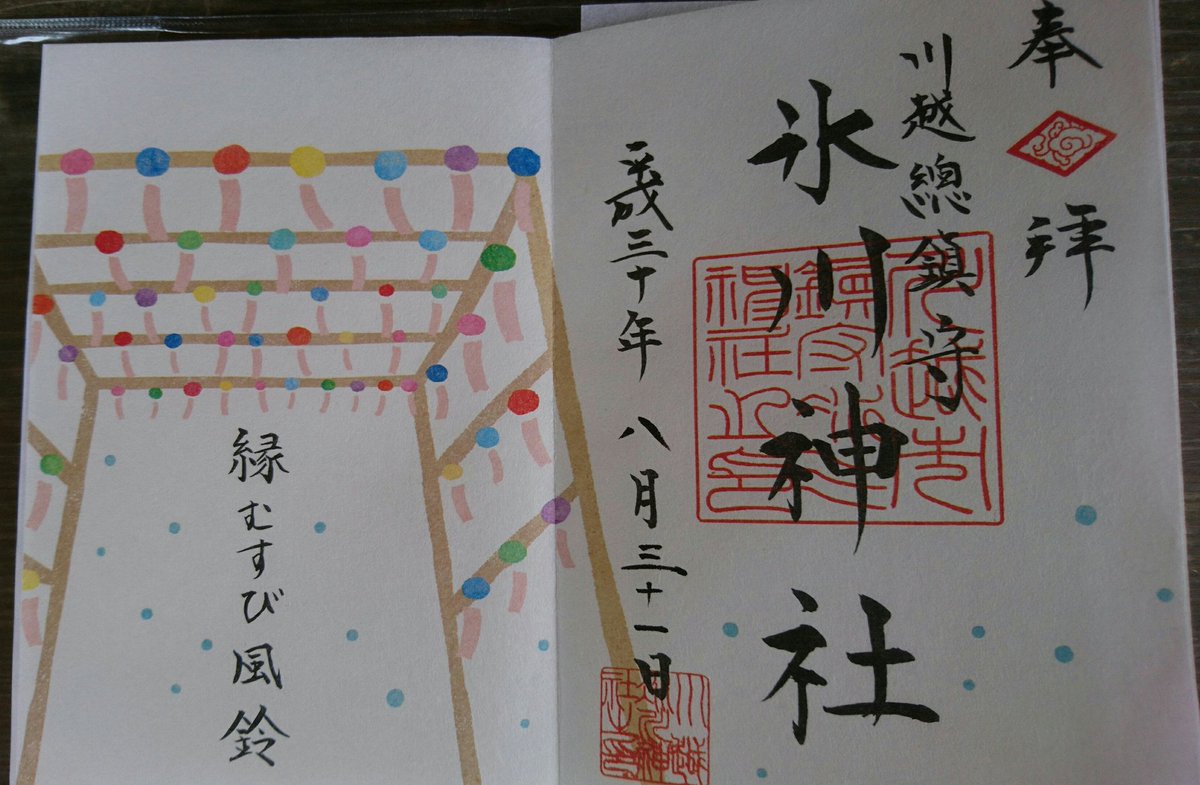 奉拝
川越總鎮守
氷川神社
平成三十年 八月三十一日
縁むすび風鈴